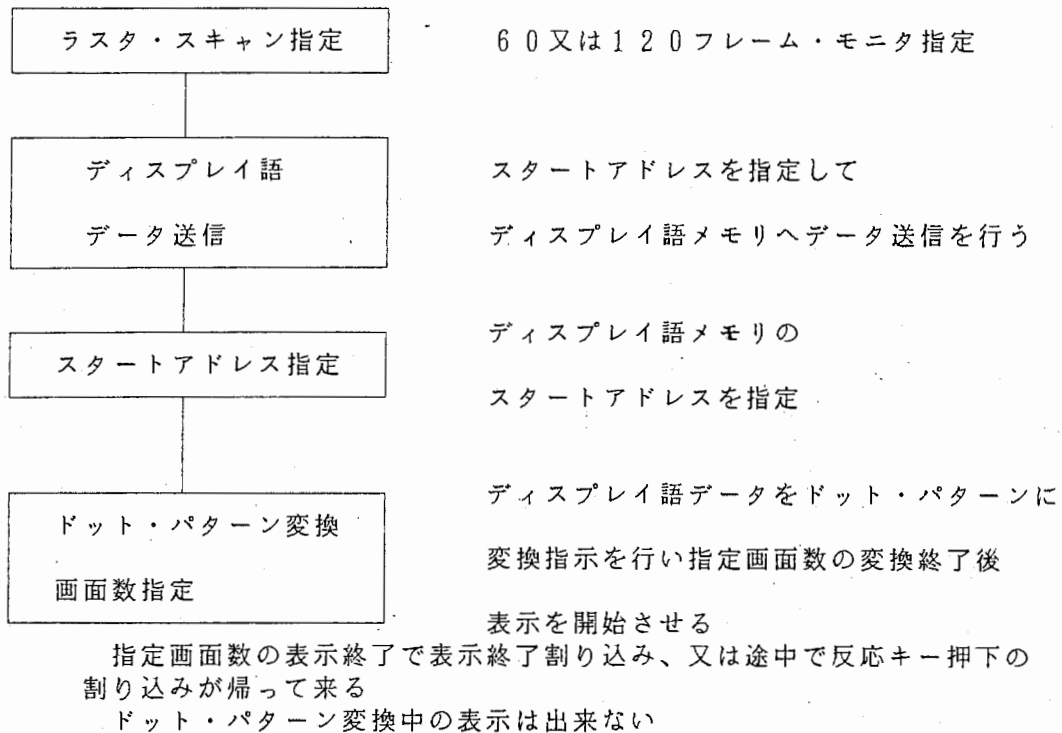 ラスタ・スキャン指定
60又は120フレーム・モニタ指定
ディスプレイ語
データ送信
スタートアドレスを指定して
ディスプレイ語メモリへデータ送信を行う
スタートアドレス指定
ディスプレイ語メモリの
スタートアドレスを指定
ドット・パターン変換
画面数指定
ディスプレイ語データをドット・パターンに
変換指示を行い指定画面数の変換終了後
表示を開始させる
指定画面数の表示終了で表示終了割り込み、又は途中で反応キー押下の
割り込みが帰って来る
ドット・パターン変換中の表示は出来ない